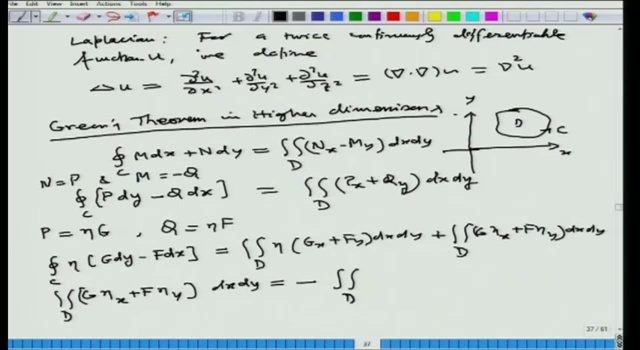 File Edit View Insert Actions Tools Help
Laplacian: For a twice continuously differentiable
function u, we define
Δu = ∂²u/∂x² + ∂²u/∂y² + ∂²u/∂z² = (∇·∇)u = ∇²u
Green's Theorem in Higher dimensions
∮_C Mdx + Ndy = ∬_D (N_x - M_y) dxdy
N = P & M = -Q
∮_C [Pdy - Qdx] = ∬_D (P_x + Q_y) dxdy
P = ηG , Q = ηF
∮_C η [Gdy - Fdx] = ∬_D η (G_x + F_y) dxdy + ∬_D (Gη_x + Fη_y) dxdy
∬_D [Gη_x + Fη_y) dxdy = - ∬_D
y
D
C
x
37 / 61
37